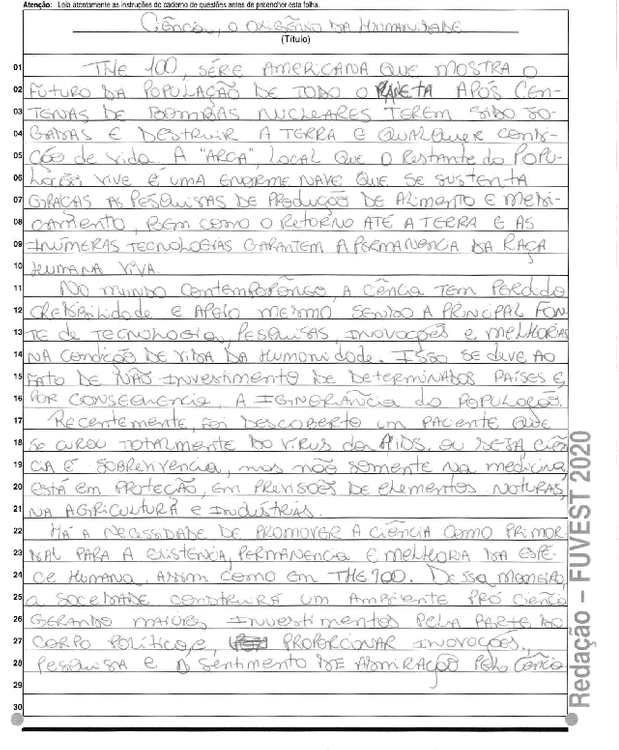 Atenção: Leia atentamente as instruções do caderno de questões antes de preencher esta folha.
Ciência, o oxigênio da Humanidade
(Título)
01 THE 100, série AMERICANA QUE MOSTRA O
02 FUTURO DA POPULAÇÃO DE TODO O PLANETA APÓS CEN-
03 TENAS DE BOMBAS NUCLEARES TEREM SIDO JO-
04 GADAS E DESTRUIR A TERRA E QUALQUER CONDI-
05 ÇÃO de vida. A "ARCA", LOCAL QUE O Restante da POPU-
06 LAÇÃO VIVE É UMA ENORME NAVE QUE SE SUSTENTA
07 GRAÇAS AS PESQUISAS DE PRODUÇÃO DE ALIMENTO E MEDI-
08 CAMENTO, BEM COMO O RETORNO ATÉ A TERRA E AS
09 INÚMERAS TECNOLOGIAS GARANTEM A PERMANENCIA DA RAÇA
10 HUMANA VIVA.
11 No mundo contemporâneo, a ciência TEM PERDIDO
12 CREDIBILIDADE E APOIO MESMO SENDO A PRINCIPAL FON
13 TE de TECNOLOGIA, PESQUISAS, INOVAÇÕES e MELHORIAS
14 NA CONDIÇÃO DE VIDA DA HUMANIDADE. ISSO SE DEVE AO
15 FATO DE NÃO INVESTIMENTO DE DETERMINADOS PAÍSES E,
16 POR CONSEQUENCIA, A IGNORÂNCIA da POPULAÇÃO.
17 Recentemente, foi DESCOBERTO um PACIENTE QUE
18 se curou TOTALMENTE DO VÍRUS da AIDS, OU SEJA, CIÊN
19 CIA É SOBREVIVENCIA, mas não somente na medicina,
20 ESTÁ EM PROTEÇÃO, EM PREVISÕES DE elementos NATURAIS,
21 NA AGRICULTURA e INDÚSTRIAS.
22 HÁ A NECESSIDADE DE PROMOVER A CIÊNCIA COMO PRIMOR
23 DIAL PARA A EXISTENCIA, PERMANENCIA E MELHORA DA ESPÉ-
24 CIE HUMANA, ASSIM COMO EM THE 100. DESSA MANEIRA,
25 a SOCIEDADE CONSTRUIRÁ UM AMBIENTE PRÓ CIÊNCIA
26 GERANDO MAIORES INVESTIMENTOS PELA PARTE DO
27 CORPO POLÍTICO, E, PROPORCIONAR INOVAÇÕES,
28 PESQUISA E O SENTIMENTO DE ADMIRAÇÃO PELA CIÊNCIA
29
30
Redação – FUVEST 2020